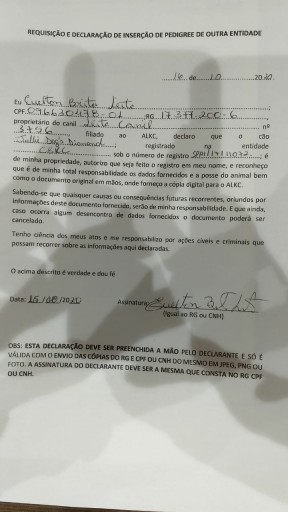 REQUISIÇÃO E DECLARAÇÃO DE INSERÇÃO DE PEDIGREE DE OUTRA ENTIDADE
14 de 10 2020
Eu Euelton Brito Leite
CPF RG 17 377 200-6
proprietário do canil Leite Canil nº
3786 filiado ao ALKC, declaro que o cão
registrado na entidade
sob o número de registro é
de minha propriedade, autorizo que seja feito o registro em meu nome, e reconheço
que é de minha total responsabilidade os dados fornecidos e a posse do animal bem
como o documento original em mãos, onde forneço a cópia digital para o ALKC.
Sabendo-se que quaisquer causas ou consequências futuras recorrentes, oriundos por
informações deste documento fornecido, serão de minha responsabilidade. E que ainda,
caso ocorra algum desencontro de dados fornecidos o documento poderá ser
cancelada.
Tenho ciência dos meus atos e me responsabilizo por ações cíveis e criminais que
possam recorrer sobre as informações aqui declaradas.
O acima descrito é verdade e dou fé
Data: /2020 Assinatura:
(Igual ao RG ou CNH)
OBS: ESTA DECLARAÇÃO DEVE SER PREENCHIDA A MÃO PELO DECLARANTE E SÓ É
VÁLIDA COM O ENVIO DAS CÓPIAS DO RG E CPF OU CNH DO MESMO EM JPEG, PNG OU
FOTO. A ASSINATURA DO DECLARANTE DEVE SER A MESMA QUE CONSTA NO RG CPF
OU CNH.